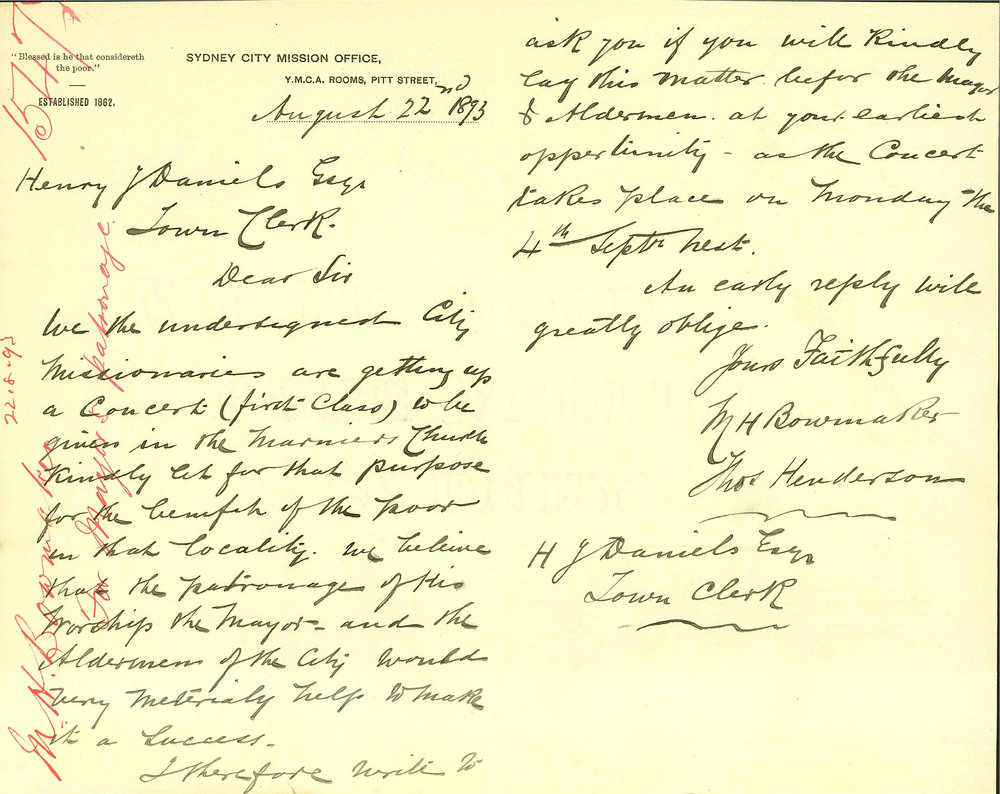 "Blessed is he that considereth
the poor."
ESTABLISHED 1862.
SYDNEY CITY MISSION OFFICE,
Y.M.C.A. ROOMS, PITT STREET,
August 22nd 1893
Henry J Daniels Esqr
Town Clerk.
Dear Sir
We the undersigned City
Missionaries are getting up
a Concert (first Class) to be
given in the Marriners Church
Kindly let for that purpose
for the benefit of the poor
in that locality. We believe
that the patronage of His
Worship the Mayor - and the
Aldermen of the City would
very materialy help to make
it a success.
I therefore write to
ask you if you will Kindly
lay this matter befor the Mayor
& Aldermen. at your earliest
opportunity - as the Concert
takes place on Monday the
4th Septr next.
An early reply will
greatly oblige.
Yours Faithfully
M H Bowmaker
Thos Henderson
H J Daniels Esqr
Town Clerk
22.8.93
M. H. Bowmaker
for Mayor's patronage.